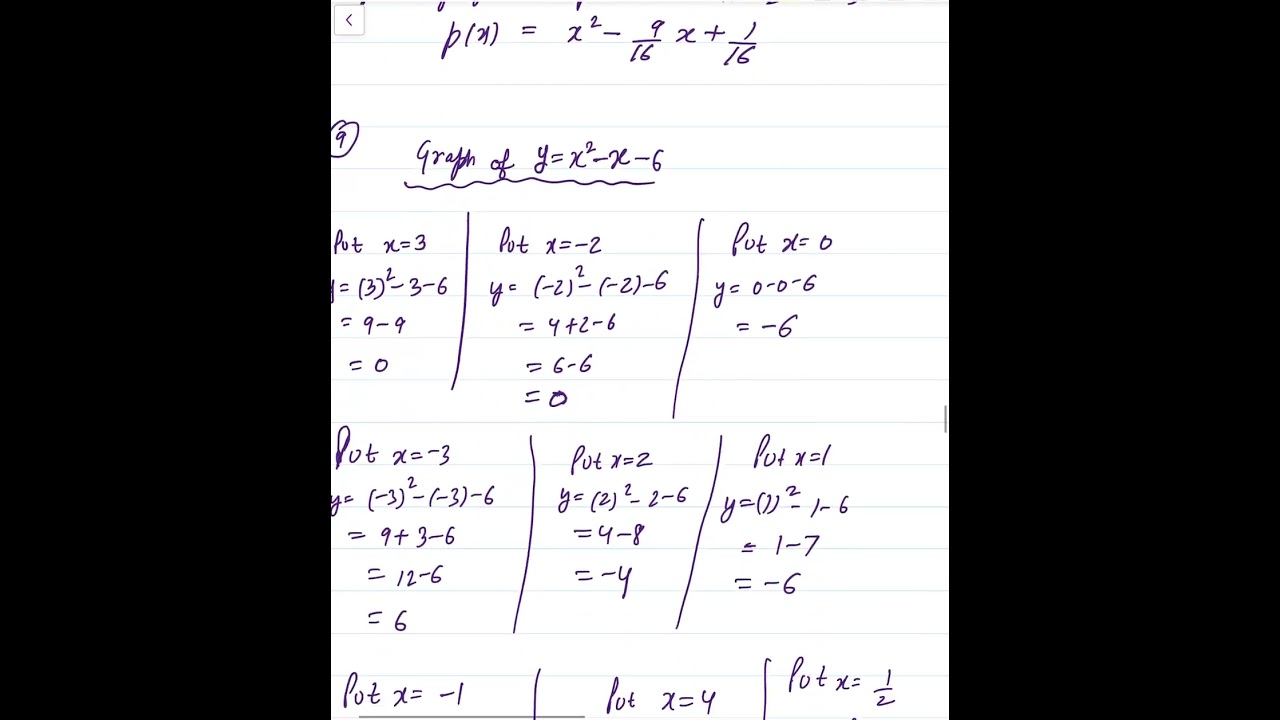 p(x) = x² - 9/16 x + 1/16
9
Graph of y=x²-x-6
Put x=3
y = (3)²-3-6
= 9-9
= 0
Put x=-2
y= (-2)²-(-2)-6
= 4+2-6
= 6-6
= 0
Put x=0
y= 0-0-6
= -6
Put x=-3
y= (-3)²-(-3)-6
= 9+3-6
= 12-6
= 6
Put x=2
y=(2)²-2-6
=4-8
=-4
Put x=1
y=(1)²-1-6
= 1-7
= -6
Put x= -1
Put x=4
Put x= 1/2